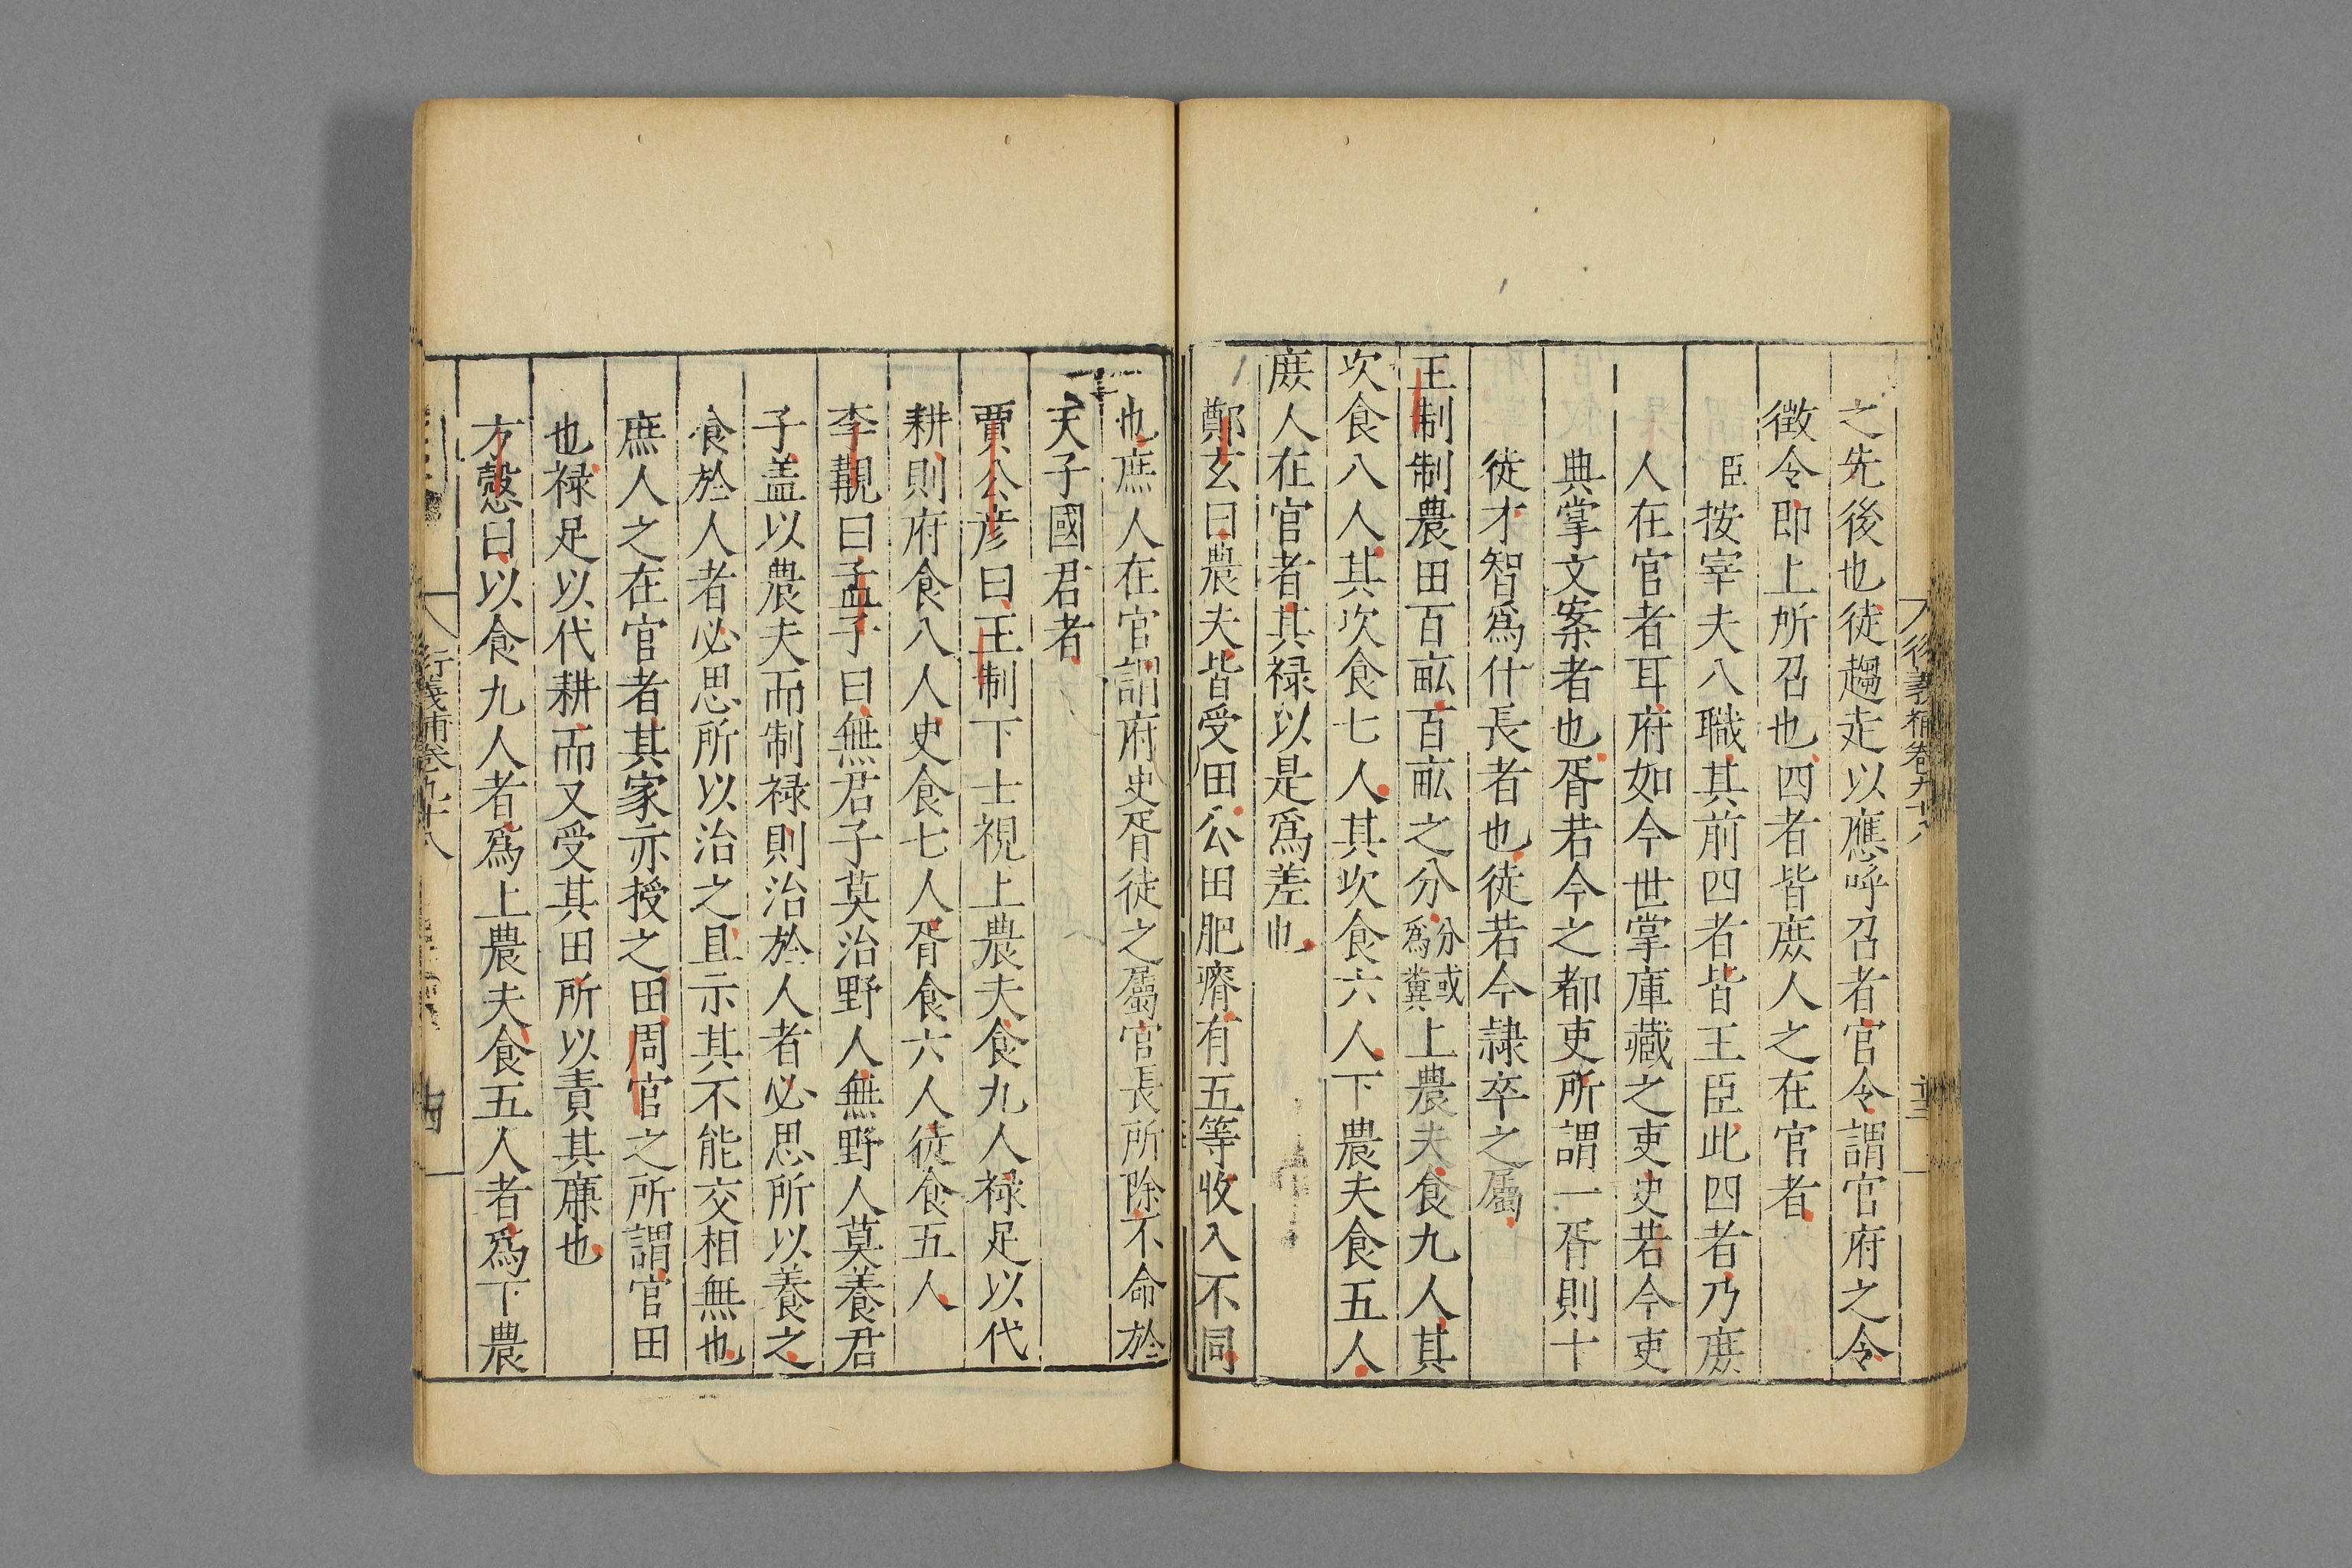 之先後也徒趨走以應呼召者官令謂官府之令
徵令即上所召也四者皆庻人之在官者
臣按宰夫八職其前四者皆王臣此四者乃庻
人在官者耳府如今世掌庫藏之吏史若今吏
典掌文案者也胥若今之都吏所謂一胥則十
徒才智爲什長者也徒若今隷卒之屬
王制制農田百畝百畝之分分或爲糞上農夫食九人其
次食八人其次食七人其次食六人下農夫食五人
庻人在官者其禄以是爲差也
鄭玄曰農夫皆受田公田肥瘠有五等收入不同
也庶人在官謂府史胥徒之屬官長所除不命於
天子國君者
賈公彦曰王制下士視上農夫食九人禄足以代
耕則府食八人史食七人胥食六人徒食五人
李覯曰孟子曰無君子莫治野人無野人莫養君
子盖以農夫而制禄則治於人者必思所以養之
食於人者必思所以治之且示其不能交相無也
庶人之在官者其家亦授之田周官之所謂官田
也禄足以代耕而又受其田所以責其廉也
方愨曰以食九人者爲上農夫食五人者爲下農
衍義補卷九十八